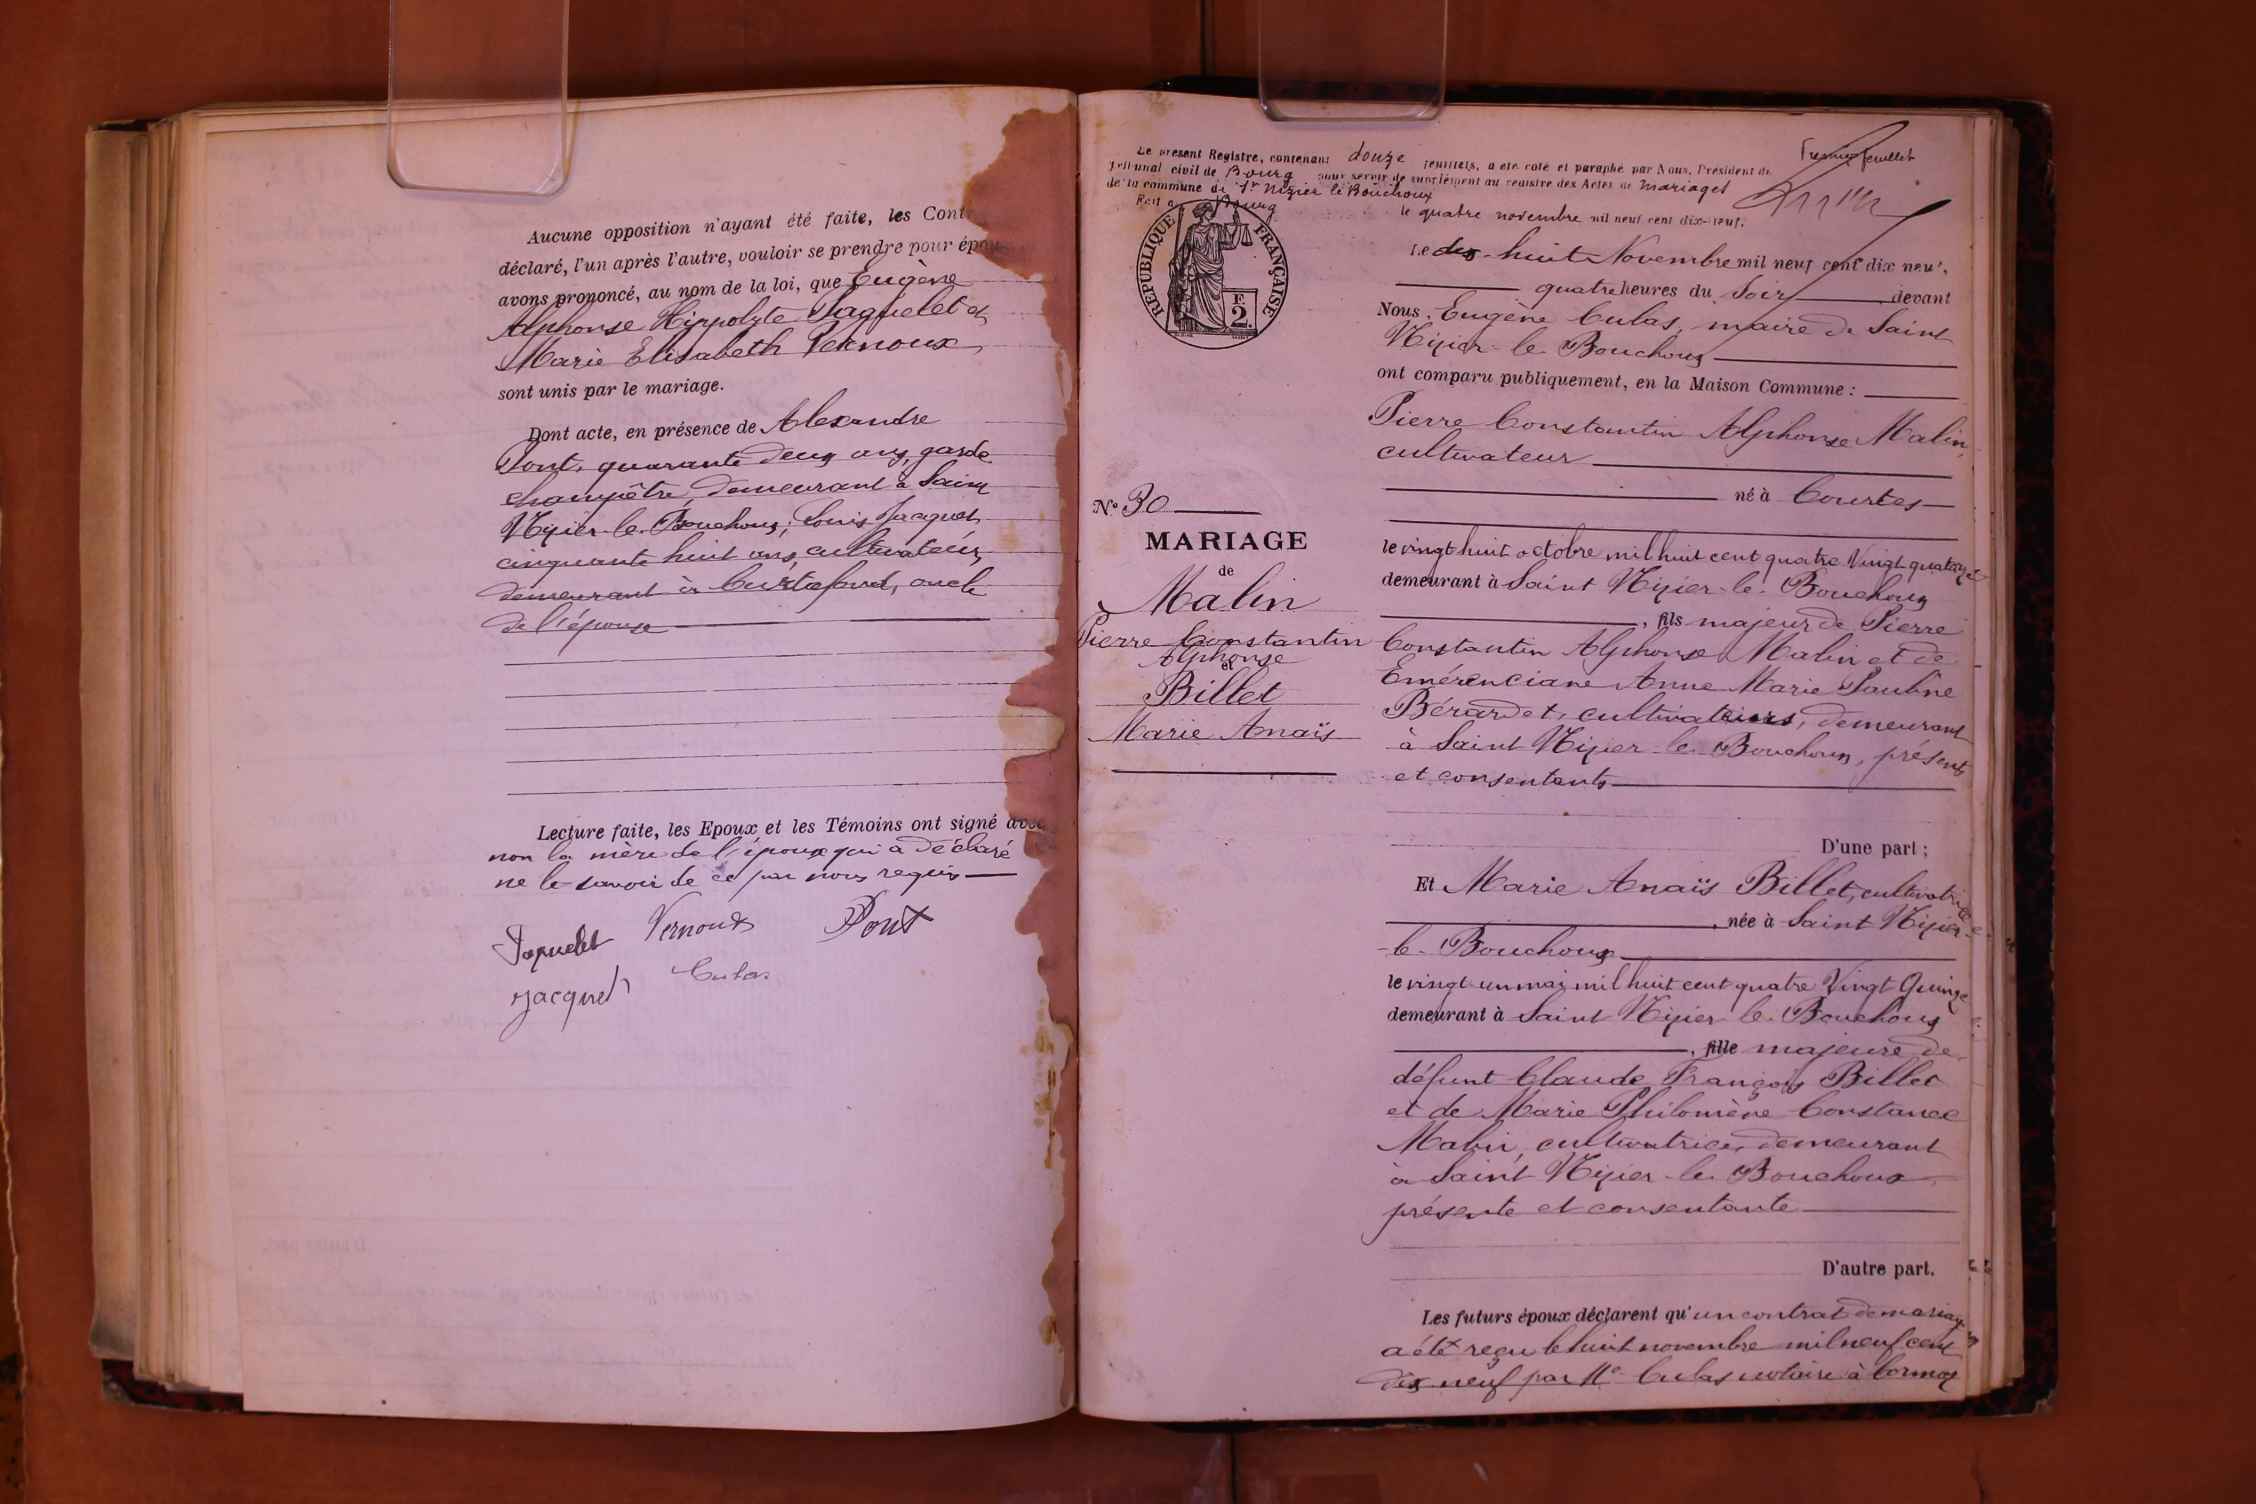 Aucune opposition n'ayant été faite, les Cont
déclaré, l'un après l'autre, vouloir se prendre pour épou
avons prononcé, au nom de la loi, que Eugène
Alphonse Hippolyte Paquelet et
Marie Elisabeth Vernoux
sont unis par le mariage.
Dont acte, en présence de Alexandre
Pont, quarante deux ans, garde
champêtre, demeurant à Saint
Nizier-le-Bouchoux; Louis Jacquet,
cinquante huit ans, cultivateur,
demeurant à Curtafond, oncle
de l'épouse
Lecture faite, les Epoux et les Témoins ont signé avec
non la mère de l'époux qui a déclaré
ne le savoir de ce par nous requis
Paquelet Vernoux Pont
Jacquet Culas
Le présent Registre, contenant douze feuillets, a été coté et paraphé par Nous, Président du
Tribunal civil de Bourg pour servir de supplément au registre des Actes de Mariages
de la commune de St Nizier le Bouchoux
Fait à Bourg le quatre novembre mil neuf cent dix-neuf.
feuillet
RÉPUBLIQUE FRANÇAISE
F
2
Le dix-huit Novembre mil neuf cent dix neuf,
quatre heures du Soir, devant
Nous, Eugène Culas, maire de Saint
Nizier-le-Bouchoux
ont comparu publiquement, en la Maison Commune :
Pierre Constantin Alphonse Malin,
cultivateur
né à Courtes
le vingt huit octobre mil huit cent quatre Vingt quatorze
demeurant à Saint Nizier-le-Bouchoux
, fils majeur de Pierre
Constantin Alphonse Malin et de
Emérenciane Anne Marie Pauline
Bérardet, cultivateurs, demeurant
à Saint Nizier-le-Bouchoux, présents
et consentants
D'une part ;
No 30
MARIAGE
de
Malin
Pierre Constantin
Alphonse
et
Billet
Marie Anaïs
Et Marie Anaïs Billet, cultivatrice
, née à Saint Nizier-
le-Bouchoux
le vingt un mai mil huit cent quatre Vingt Quinze
demeurant à Saint Nizier le Bouchoux
, fille majeure de
défunt Claude François Billet
et de Marie Philomène Constance
Malin, cultivatrice, demeurant
à Saint Nizier-le-Bouchoux
présente et consentante
D'autre part.
Les futurs époux déclarent qu'un contrat de mariage
a été reçu le huit novembre mil neuf cent
dix neuf par Me Culas notaire à Cormoz